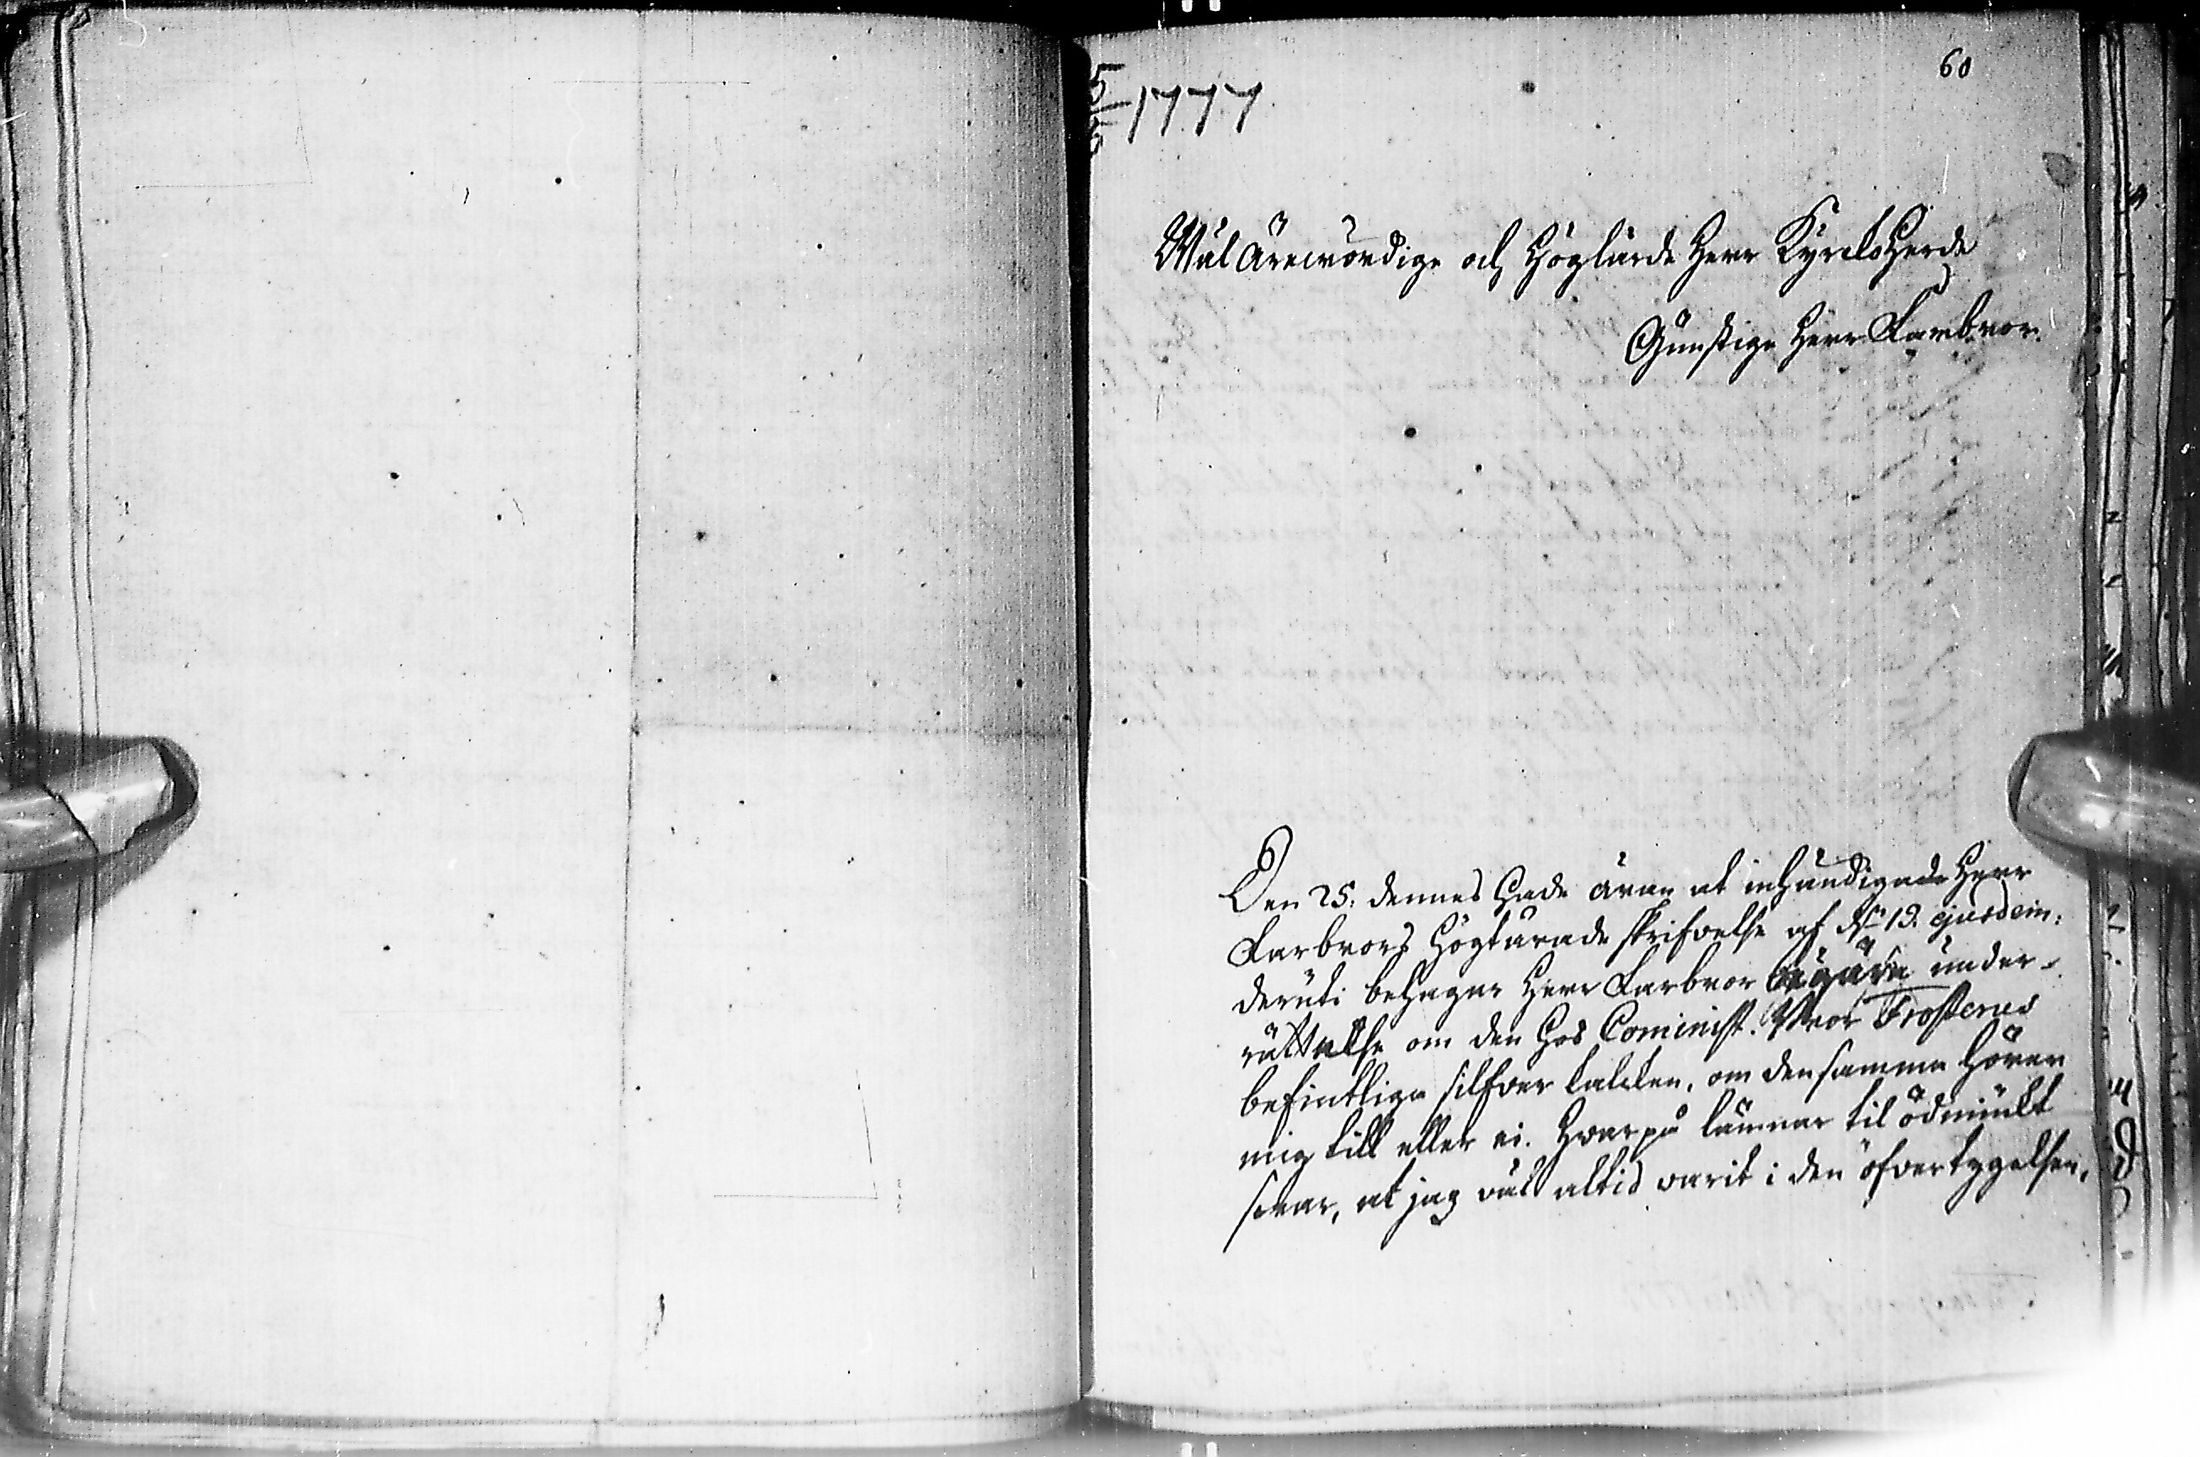 60
5/5 1777
WälÄrewördige och Höglärde Herr KyrckoHerde
Gunstige Herr Farbror.
Den 25: dennes Hade äran at inhändigade Herr
Farbrors Högtärade skrifvelse af d. 19. ejusdem:
deruti behagar Herr Farbror begära under-
rättelse om den hos Cominist. Mor Frosterus
befintlige silfver kalcken, om densamma hörer
mig till eller ei. Hvarpå lämnar til ödmiukt
svar, at jag väl altid varit i den öfvertygelsen,